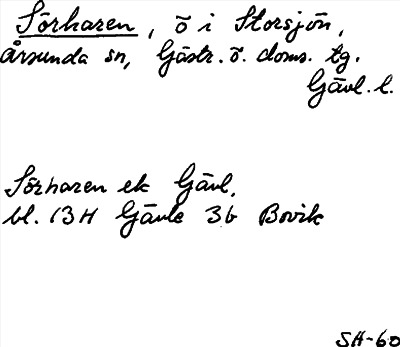 Sörharen, ö i Storsjön,
Årsunda sn, Gästr. ö. doms. tg.
Gävl. l.
Sörharen ek Gävl.
bl. 13H Gävle 3b Bovik
SH-60